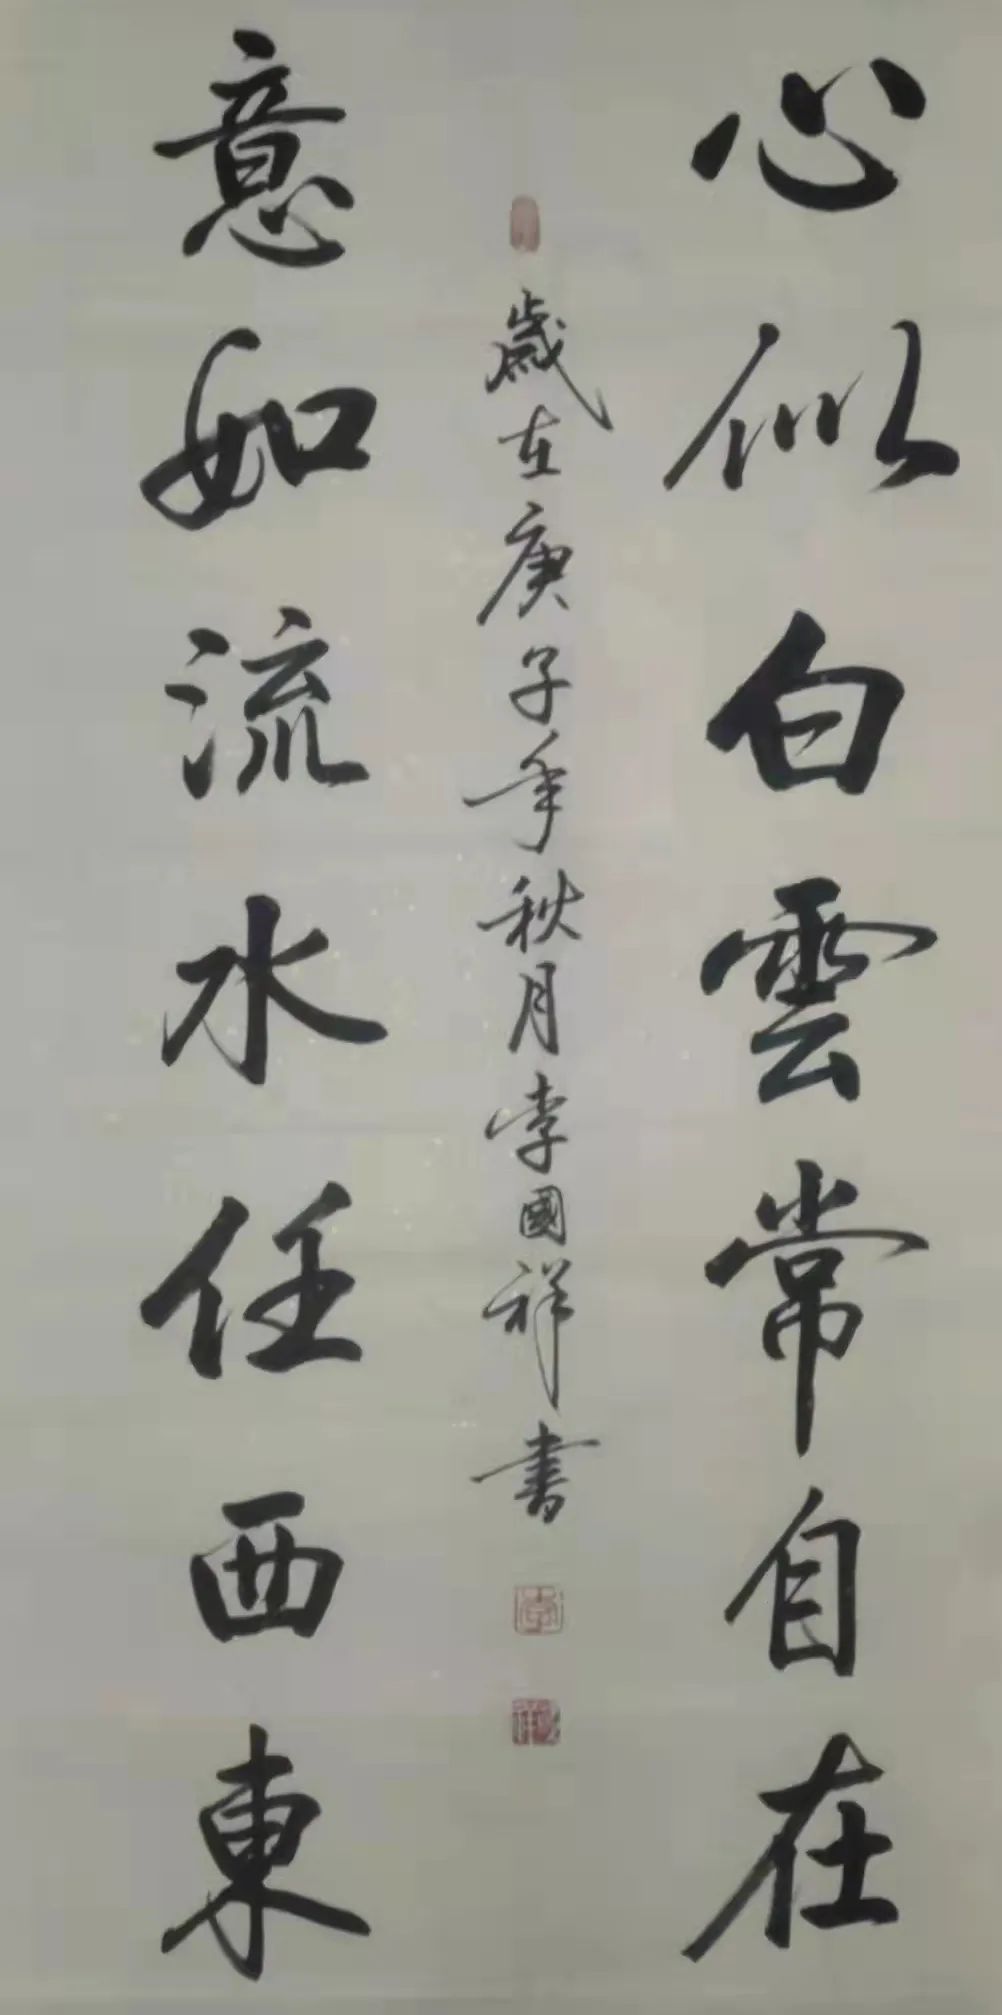 心似白雲常自在
意如流水任西東
歲在庚子年秋月李國祥書